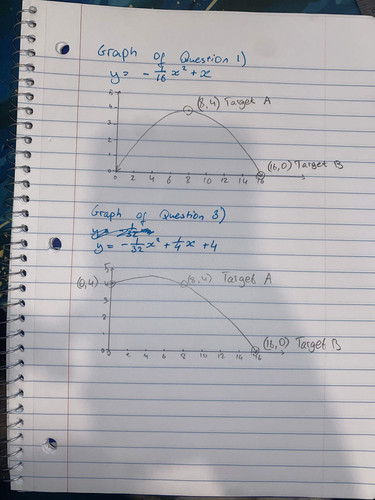 Graph of Question 1)
y = - 1/16 x² + x
6
5
4
3
2
1
0
(8,4) Target A
(16,0) Target B
0 2 4 6 8 10 12 14 16
Graph of Question 3)
y = - 1/32 x² + 1/4 x + 4
5
4
3
2
1
0
(0,4)
(8,4) Target A
(16,0) Target B
0 2 4 6 8 10 12 14 16